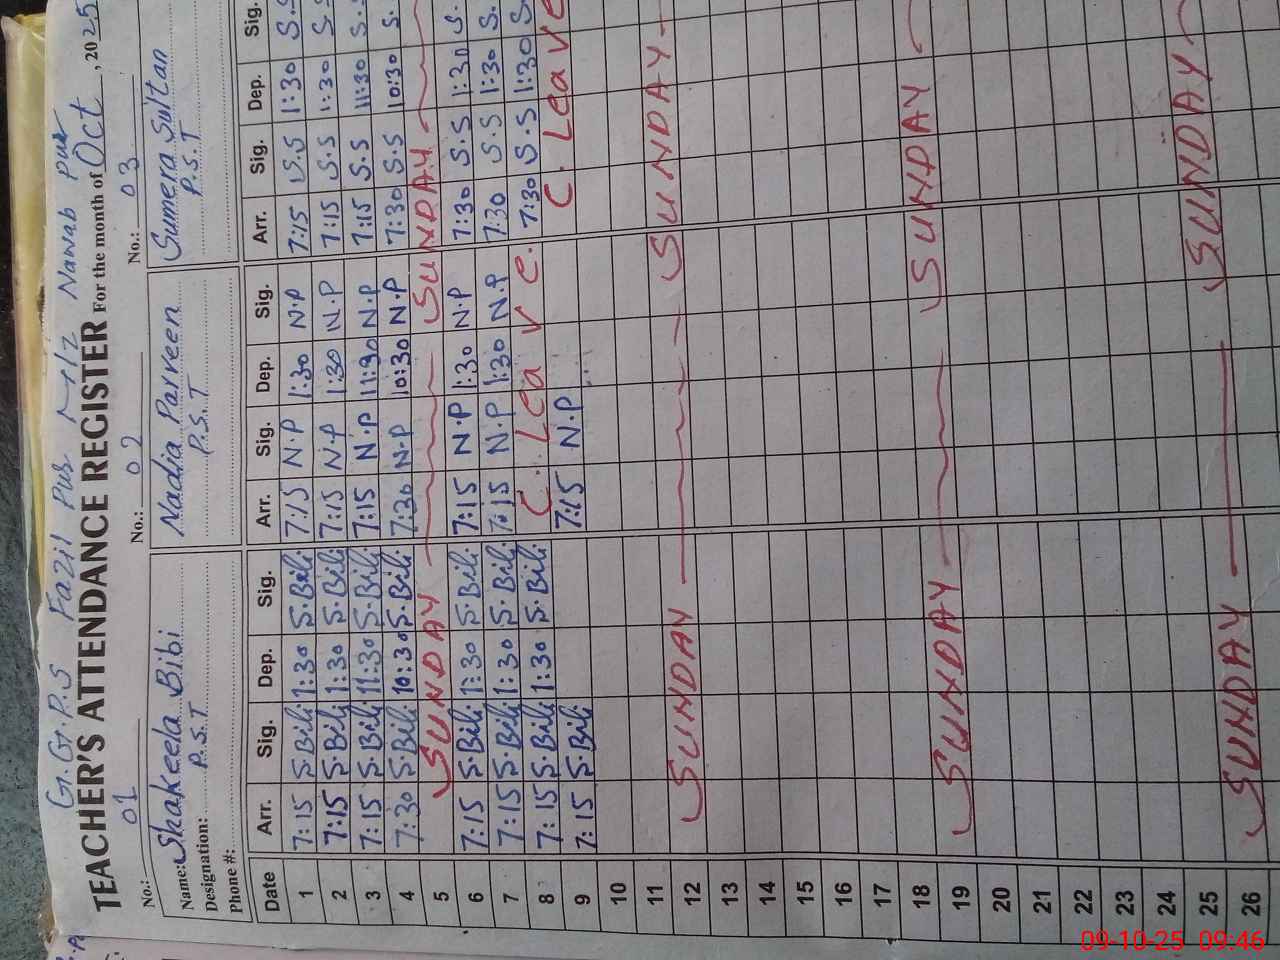 G.G.P.S Fazil Pur Nawab Pur
TEACHER'S ATTENDANCE REGISTER For the month of Oct, 2025
No.: 01 No.: 02 No.: 03
Name: Shakeela Bibi Nadia Parveen Sumera Sultan
Designation: P.S.T P.S.T P.S.T
Phone #:
Date Arr. Sig. Dep. Sig. Arr. Sig. Dep. Sig. Arr. Sig. Dep. Sig.
1 7:15 S.Bibi 1:30 S.Bibi 7:15 N.P 1:30 N.P 7:15 S.S 1:30 S.S
2 7:15 S.Bibi 1:30 S.Bibi 7:15 N.P 1:30 N.P 7:15 S.S 1:30 S.
3 7:15 S.Bibi 11:30 S.Bibi 7:15 N.P 11:30 N.P 7:15 S.S 11:30 S.
4 7:30 S.Bibi 10:30 S.Bibi 7:30 N.P 10:30 N.P 7:30 S.S 10:30 S.
5 SUNDAY SUNDAY
6 7:15 S.Bibi 1:30 S.Bibi 7:15 N.P 1:30 N.P 7:30 S.S 1:30 S.
7 7:15 S.Bibi 1:30 S.Bibi 7:15 N.P 1:30 N.P 7:30 S.S 1:30 S.
8 7:15 S.Bibi 1:30 S.Bibi C. Leave. 7:30 S.S 1:30 S.
9 7:15 S.Bibi 7:15 N.P C. Leave
10
11
12 SUNDAY SUNDAY
13
14
15
16
17
18
19 SUNDAY SUNDAY
20
21
22
23
24
25
26 SUNDAY SUNDAY
09-10-25 09:46